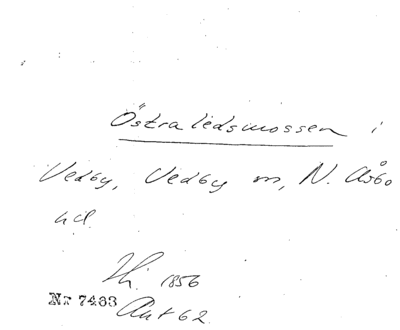 Östra ledsmossen i
Vedby, Vedby sn, N. Åsbo
hd.
Hi. 1856
Nr 7483
Akt 62